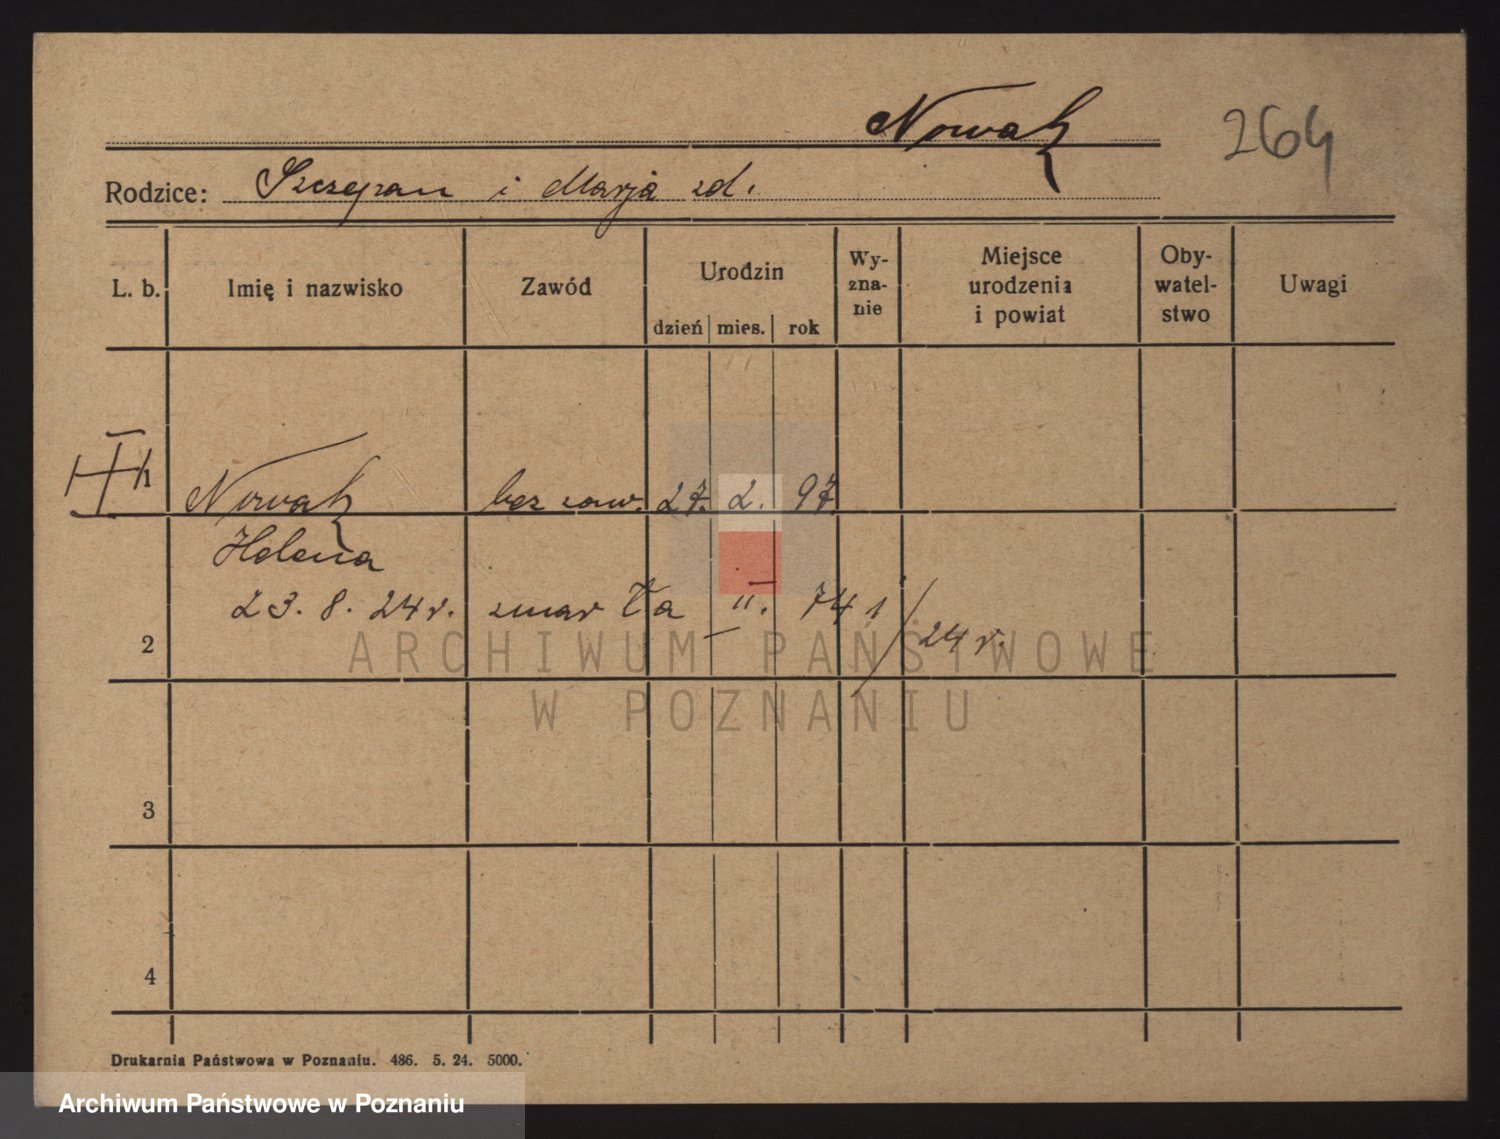 Nowak
264
Rodzice: Szczepan i Marja zd.
L. b. Imię i nazwisko Zawód Urodzin dzień mies. rok Wy-zna-nie Miejsce urodzenia i powiat Oby-watel-stwo Uwagi
1 Nowak bez zaw. 27. 2. 97
Helena
23. 8. 24 r. zmarła II. 741/24 r.
2
ARCHIWUM PAŃSTWOWE
W POZNANIU
3
4
Drukarnia Państwowa w Poznaniu. 486. 5. 24. 5000.
Archiwum Państwowe w Poznaniu